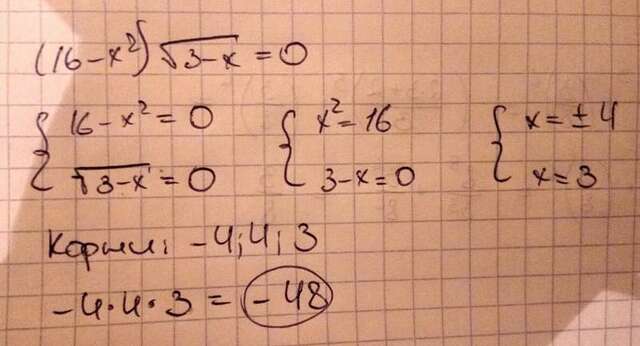 (16-x²)√3-x = 0
{ 16-x² = 0 { x² = 16 { x = ± 4
√3-x = 0 3-x = 0 x = 3
Корни: -4; 4; 3
-4·4·3 = -48